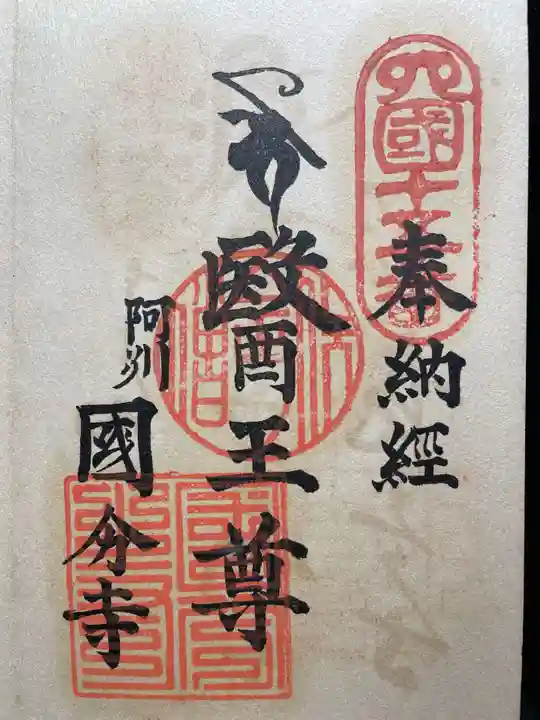 四國十五番
奉納經
醫王尊
阿州
國分寺